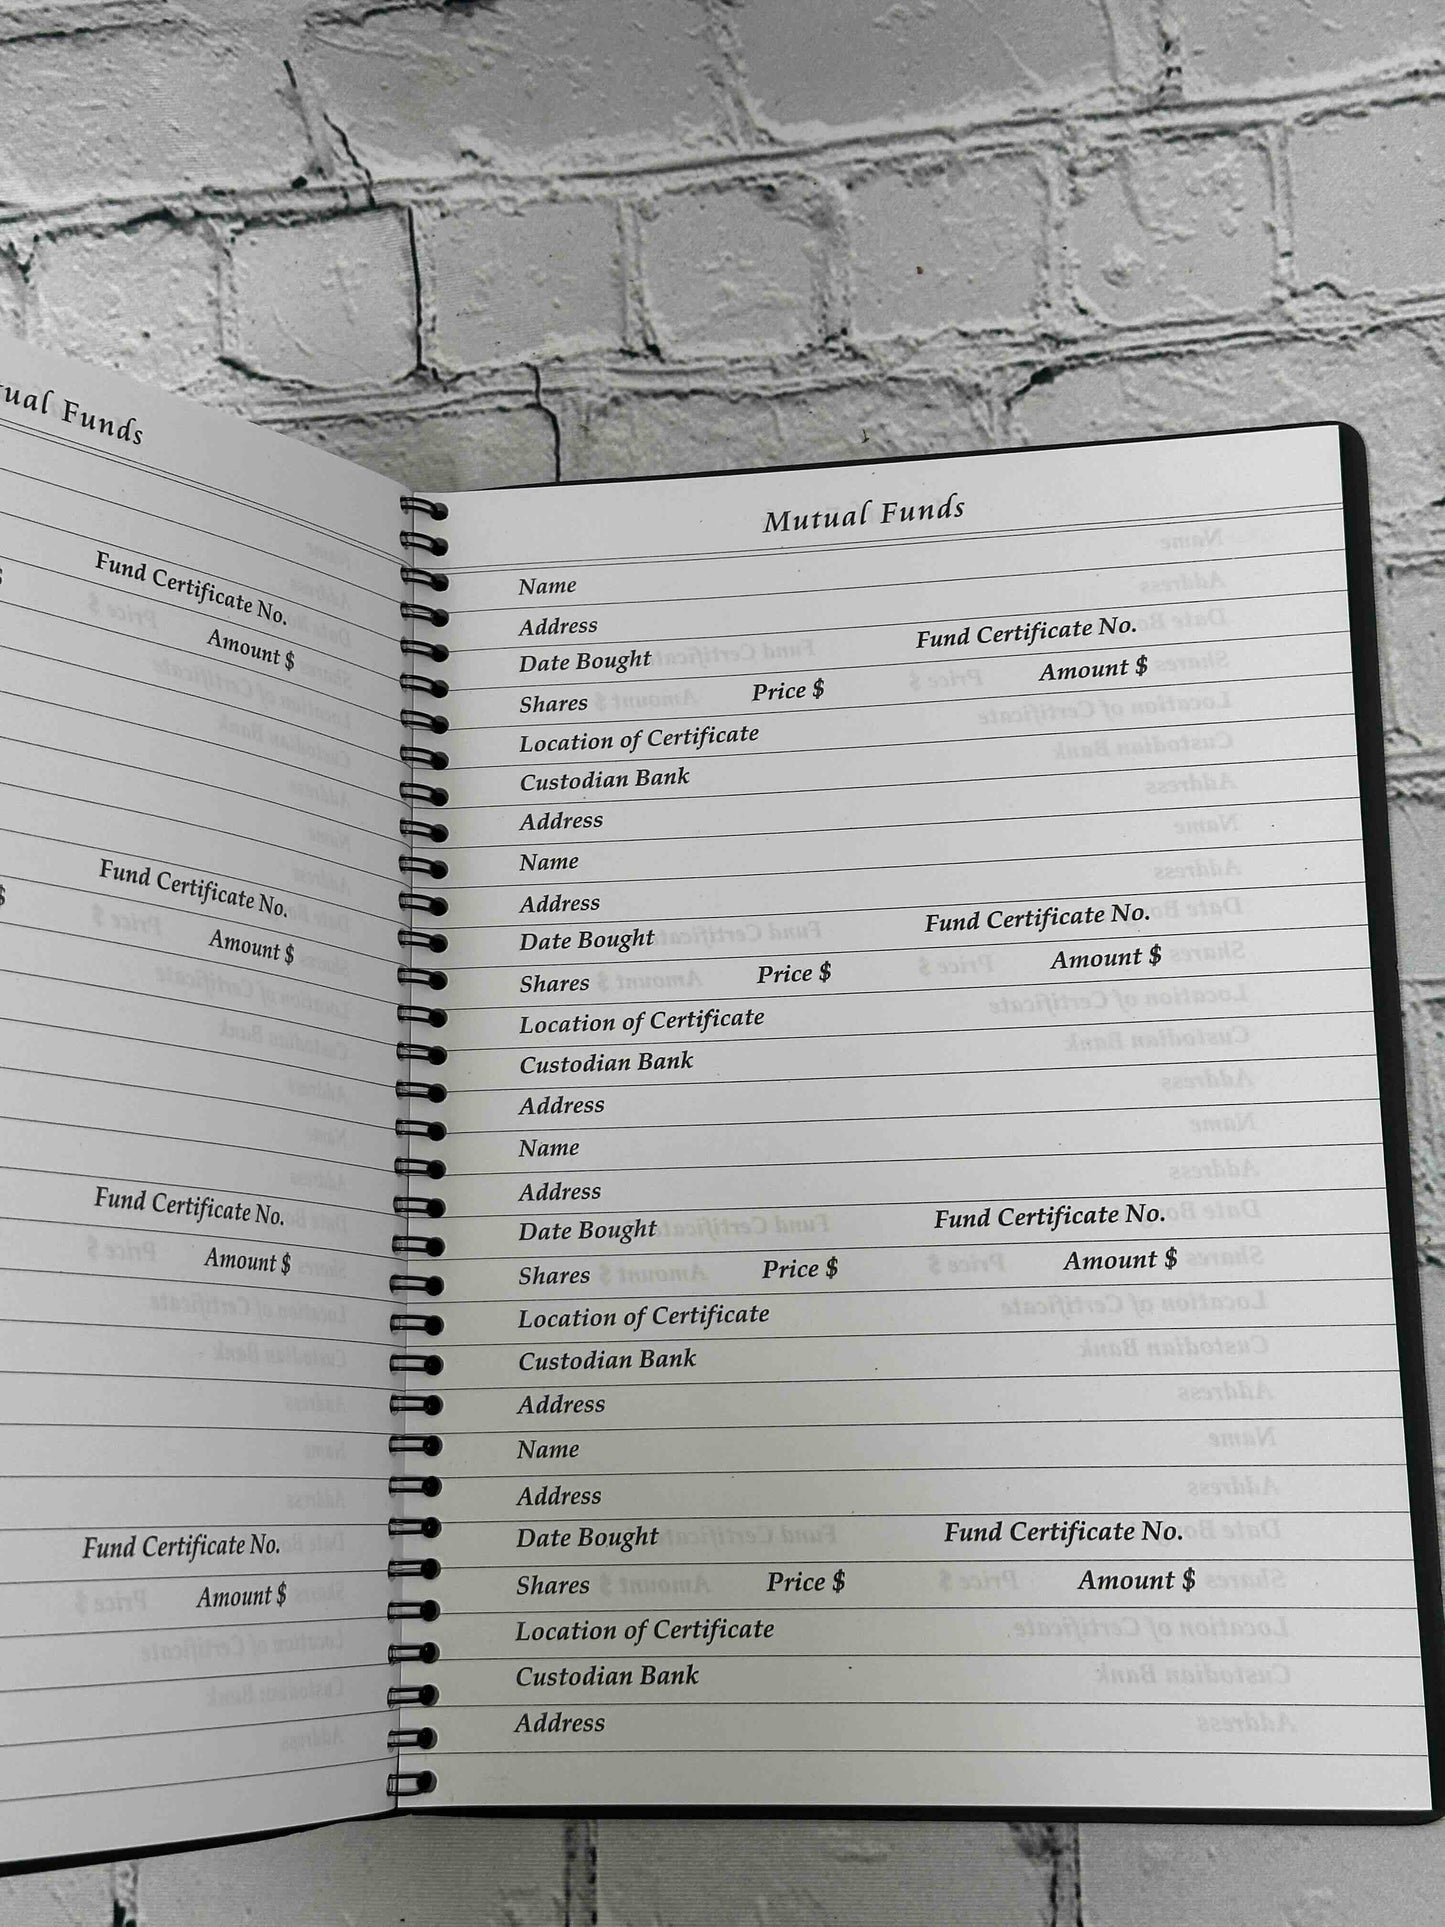 tual Funds
Fund Certificate No.
Amount $
$
Fund Certificate No.
Amount $
Fund Certificate No.
Amount $
Fund Certificate No.
Amount $
Mutual Funds
Name
Address
Date Bought Fund Certificate No.
Shares Price $ Amount $
Location of Certificate
Custodian Bank
Address
Name
Address
Date Bought Fund Certificate No.
Shares Price $ Amount $
Location of Certificate
Custodian Bank
Address
Name
Address
Date Bought Fund Certificate No.
Shares Price $ Amount $
Location of Certificate
Custodian Bank
Address
Name
Address
Date Bought Fund Certificate No.
Shares Price $ Amount $
Location of Certificate
Custodian Bank
Address